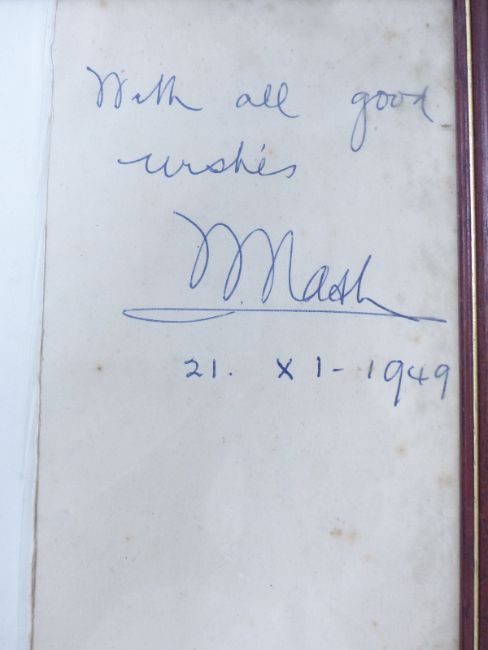 With all good
wishes
W. Nash
21. XI-1949